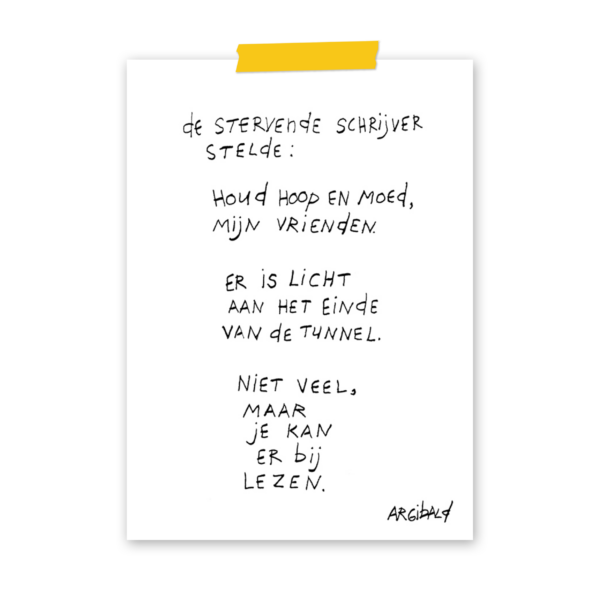 de STERVENDE SCHRIJVER
STELDE:
HOUD HOOP EN MOED,
MIJN VRIENDEN.
ER iS LiCHT
AAN HET EINDE
VAN de TUNNEL.
NIET VEEL,
MAAR
je KAN
ER bij
LEZEN.
ARGibALd